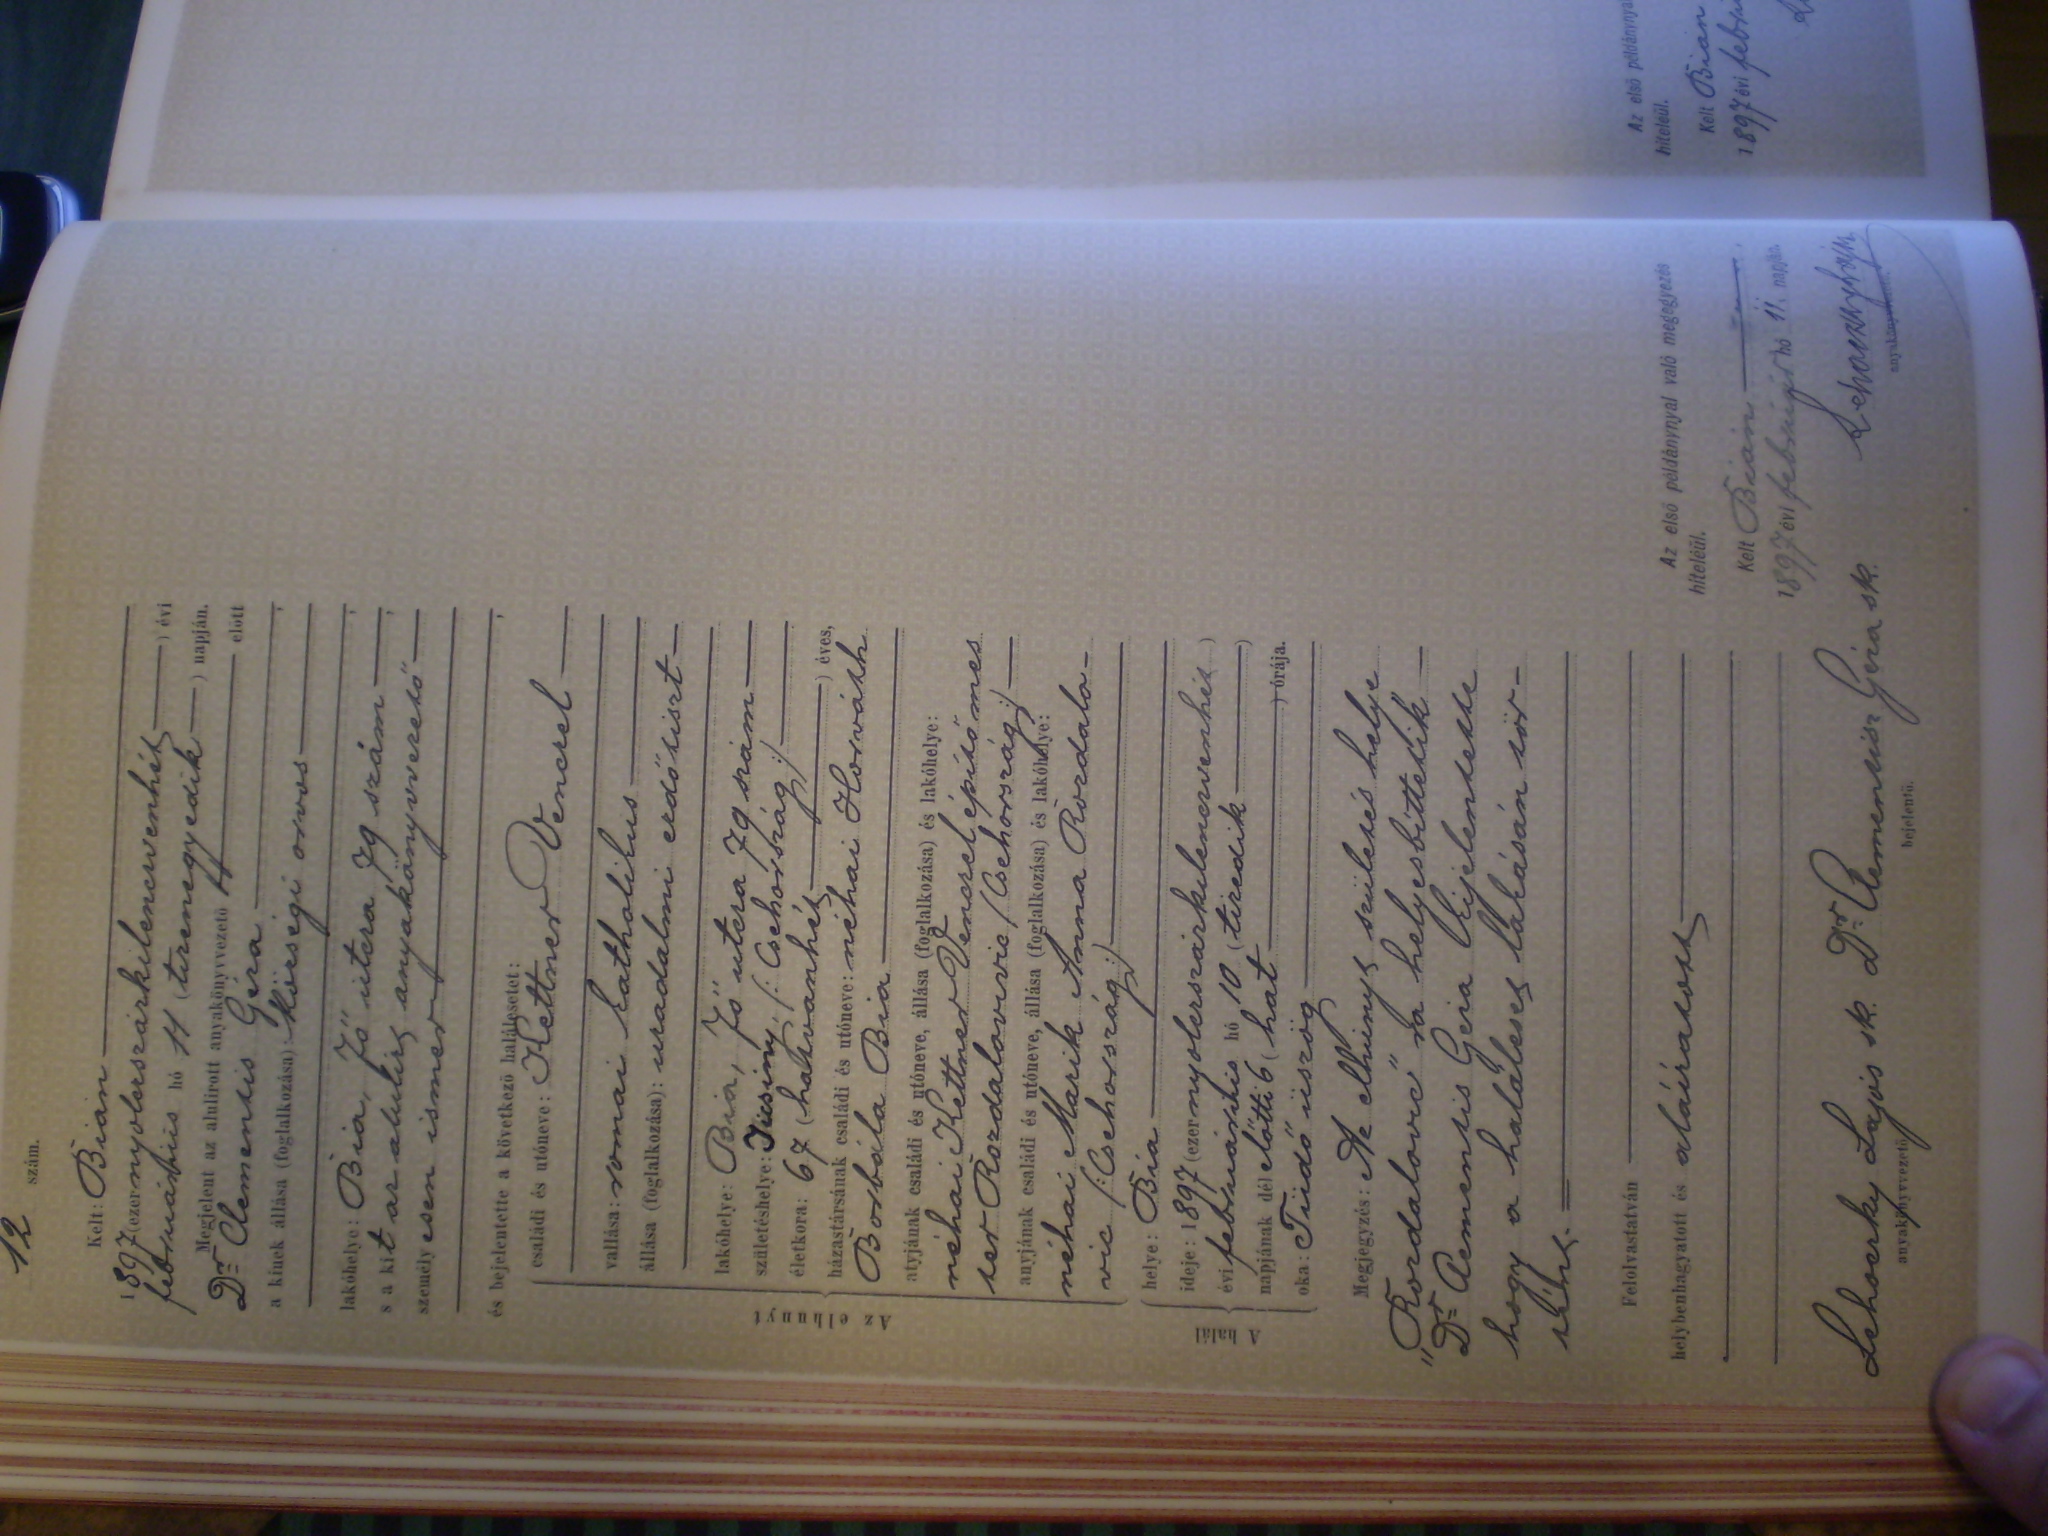 12 szám.
Kelt: Bián
1897 (ezernyolcszázkilencvenhét) évi
februárius hó 11 (tizenegyedik) napján.
Megjelent az alulirott anyakönyvvezető előtt
Dr. Clementis Géza
a kinek állása (foglalkozása): községi orvos
lakóhelye: Bia, Fő utca 79 szám
s a kit az alulirt anyakönyvvezető
személyesen ismer
és bejelentette a következő halálesetet:
Az elhunyt
családi és utóneve: Kettner Vencel
vallása: romai katholikus
állása (foglalkozása): uradalmi erdőtiszt
lakóhelye: Bia, Fő utca 79 szám
születéshelye: Jicsiny /: Csehország :/
életkora: 67 (hatvanhét) éves,
házastársának családi és utóneve: néhai Horváth
Borbála Bia
atyjának családi és utóneve, állása (foglalkozása) és lakóhelye:
néhai Kettner Vencel építőmes
ter Rozdalovic /: Csehország :/
anyjának családi és utóneve, állása (foglalkozása) és lakóhelye:
néhai Marik Anna Rozdalo-
vic /: Csehország :/
A halál
helye: Bia
ideje: 1897 (ezernyolcszázkilencvenhét)
évi februárius hó 10 (tizedik)
napjának dél előtti 6 (hat) órája.
oka: Tüdő üszög
Megjegyzés: Az elhunyt születés helye
"Rozdalovic" ra helyesbíttetik
Dr. Clementis Géza kijelentette
hogy a haláleset lakásán tör-
tént.
Felolvastatván
helybenhagyatott és aláiratott
Lehoczky Lajos sk. Dr. Clementisz Géza sk.
anyakönyvvezető bejelentő.
Az első példánynyal való megegyezés
hiteléül.
Kelt Bián
1897 évi február hó 11. napján.
Lehoczky Lajos
anyakönyvvezető
Az első példánynyal
hiteléül.
Kelt Bián
1897 évi